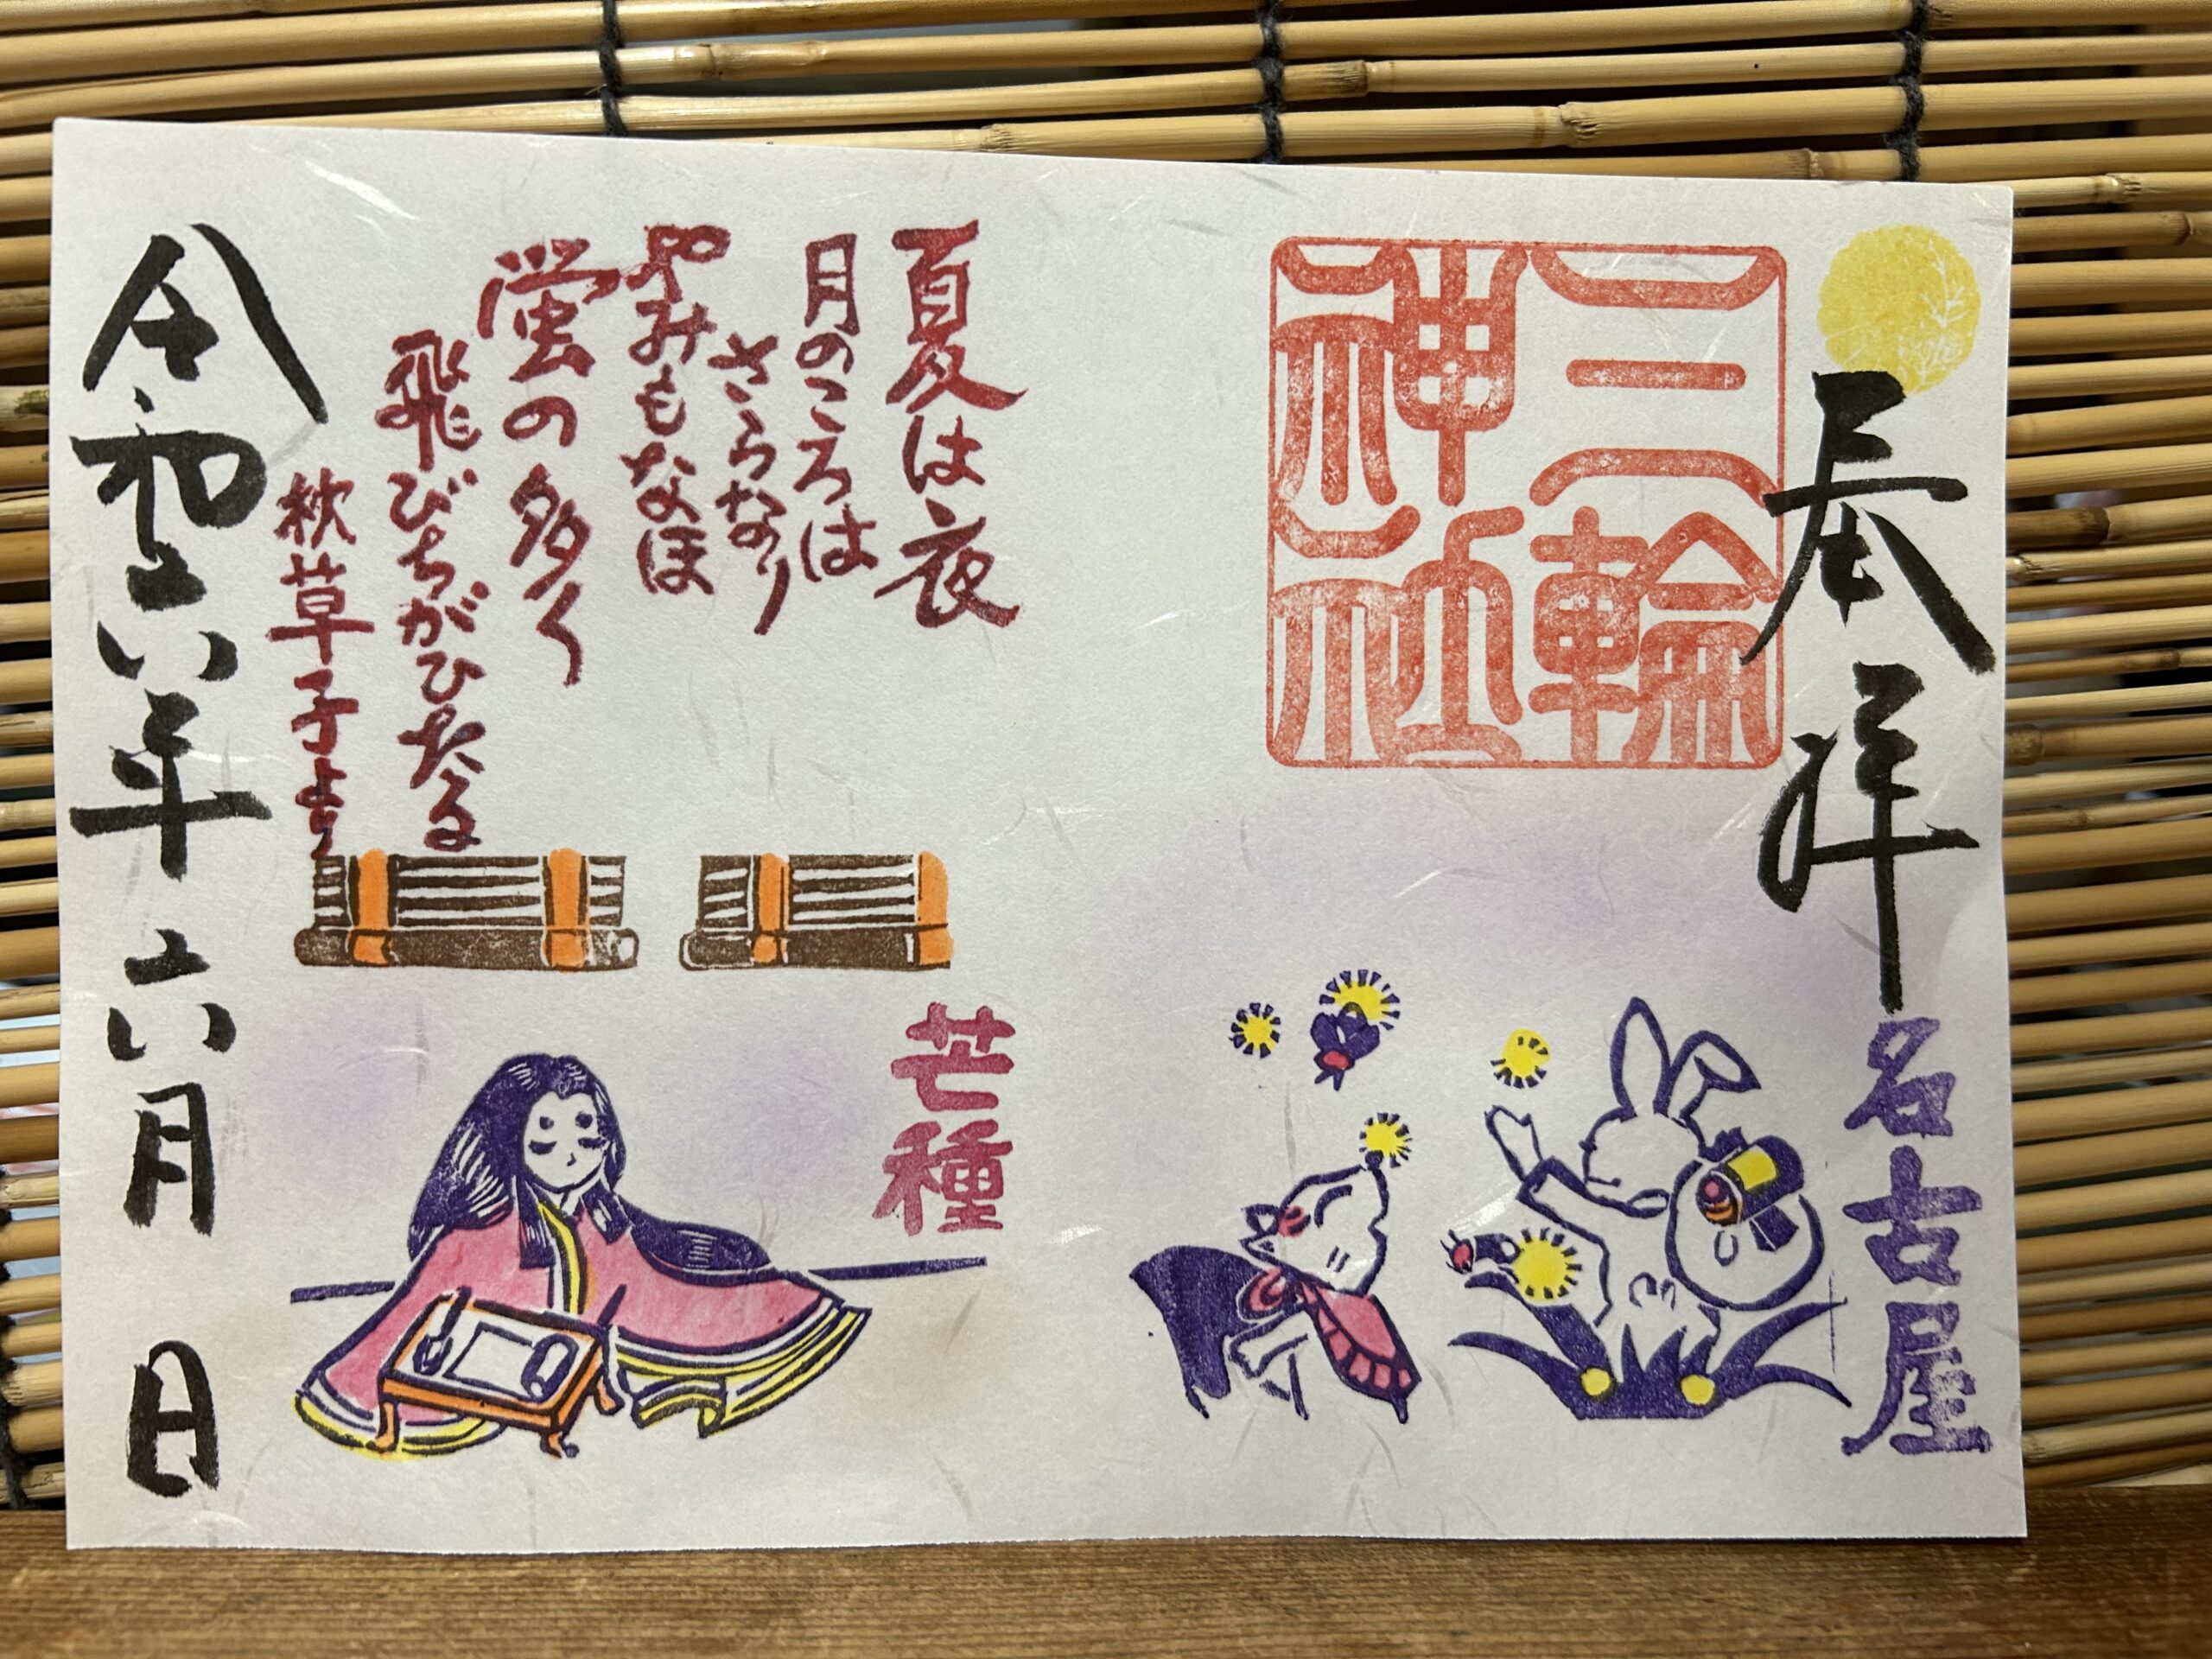 奉拝
名古屋
三輪
神社
夏は夜
月のころは
さらなり
やみもなほ
蛍の多く
飛びちがひたる
枕草子より
芒種
令和六年六月 日